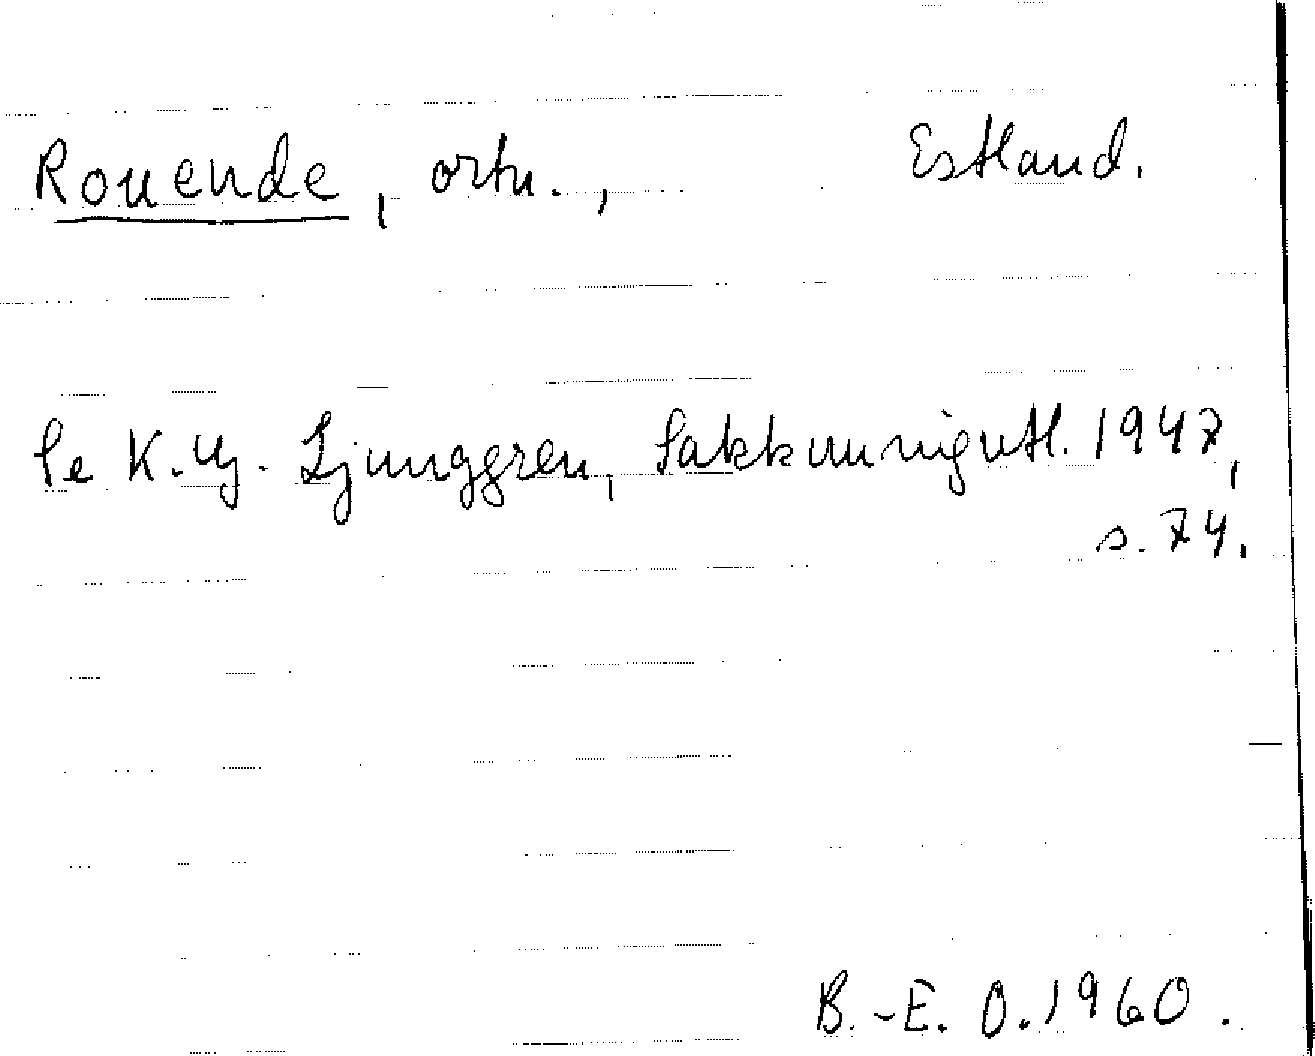 Rouende, ortn., Estland.
Se K. Hj. Ljunggren, Sakkunnigutl. 1947,
s. 74.
B.-E. O. 1960.